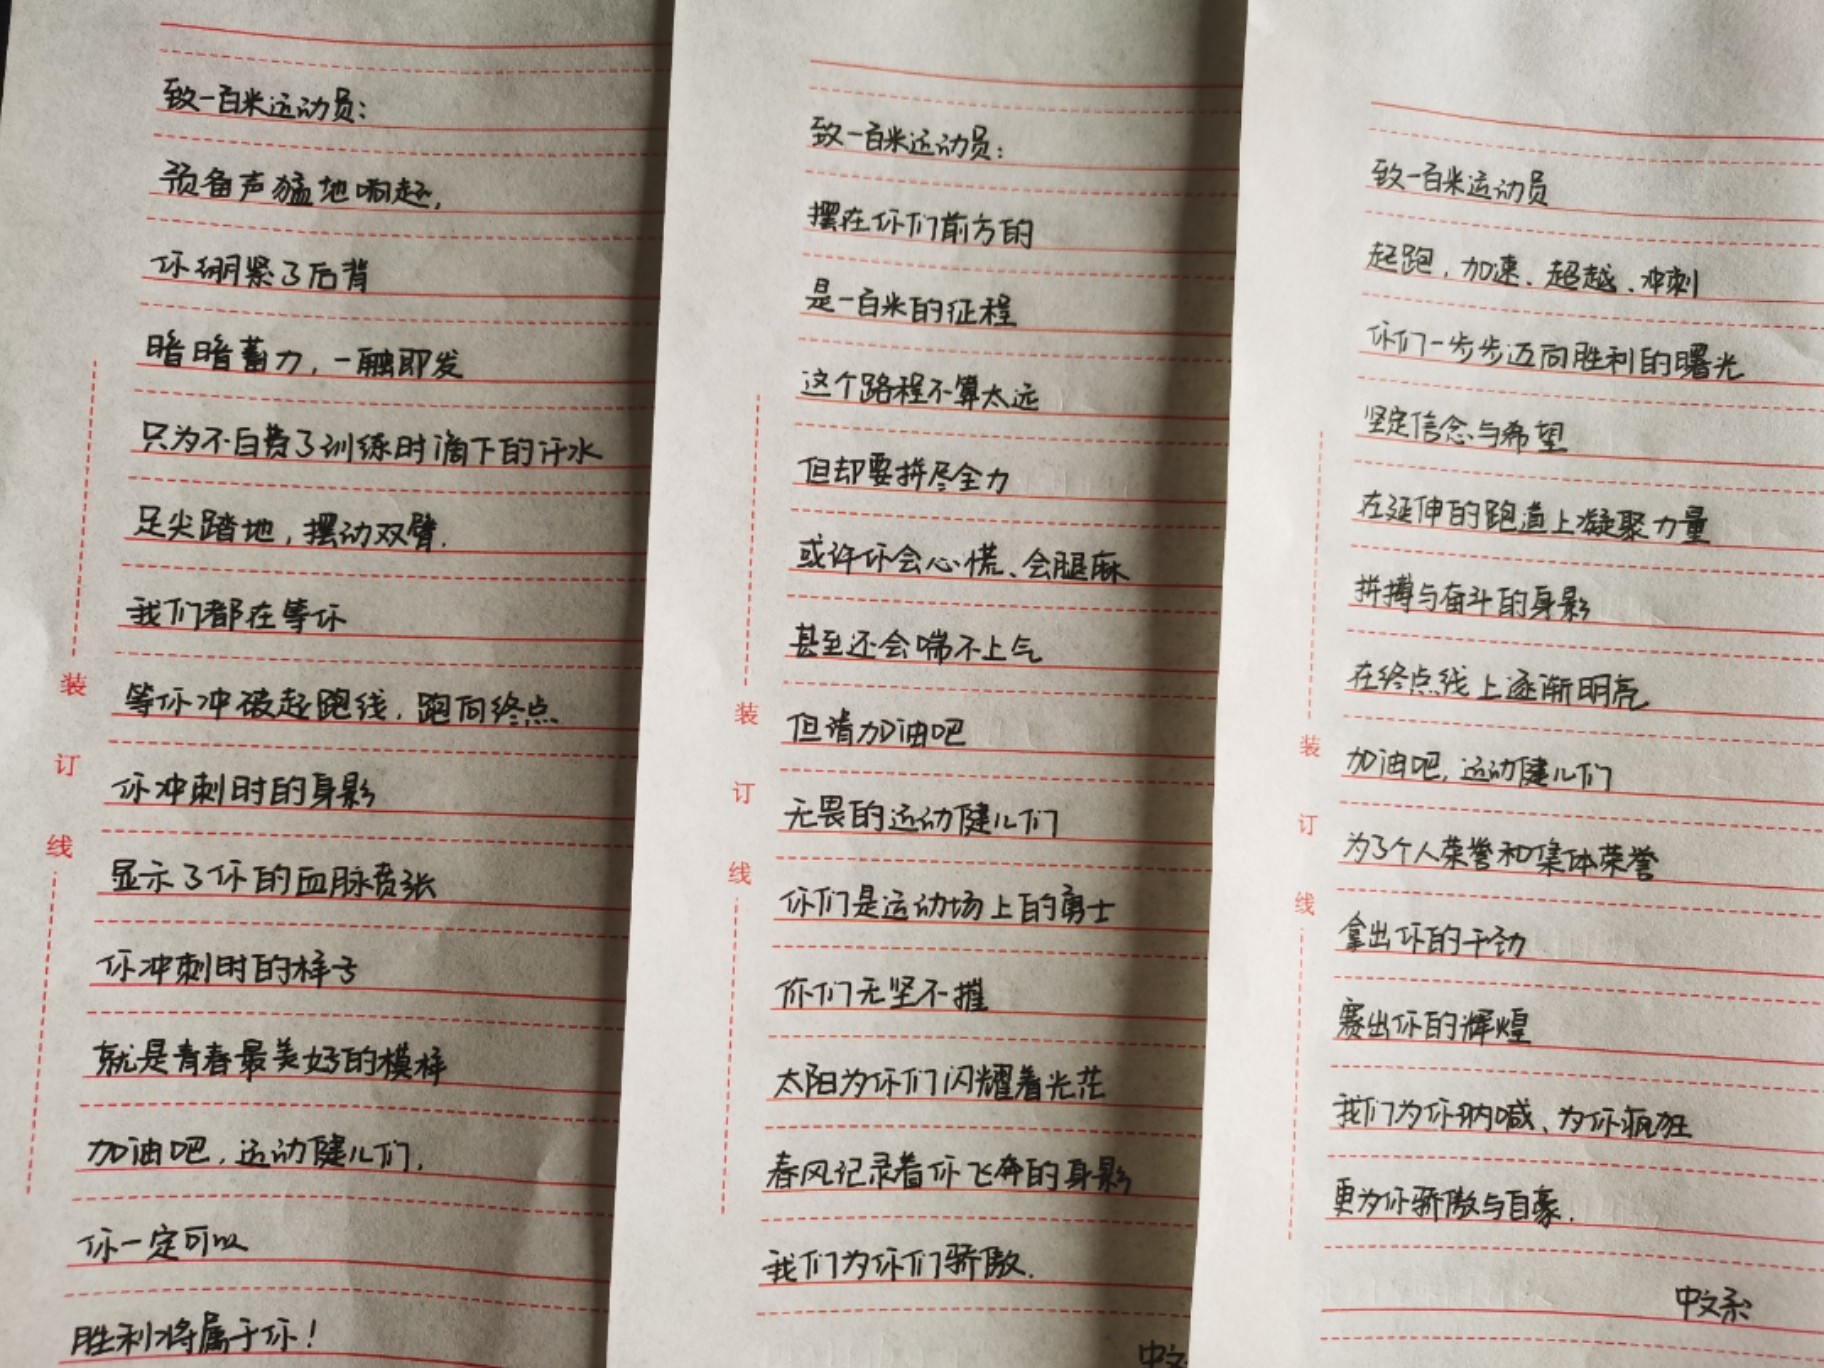 致一百米运动员：
预备声猛地响起，
你绷紧了后背
暗暗蓄力，一触即发
只为不白费了训练时滴下的汗水
足尖踏地，摆动双臂.
我们都在等你
等你冲破起跑线，跑向终点
你冲刺时的身影
显示了你的血脉贲张
你冲刺时的样子
就是青春最美好的模样
加油吧，运动健儿们，
你一定可以
胜利将属于你！
装
订
线
致一百米运动员：
摆在你们前方的
是一百米的征程
这个路程不算太远
但却要拼尽全力
或许你会心慌、会腿麻
甚至还会喘不上气
但请加油吧
无畏的运动健儿们
你们是运动场上的勇士
你们无坚不摧
太阳为你们闪耀着光芒
春风记录着你飞奔的身影
我们为你们骄傲.
中文
装
订
线
致一百米运动员
起跑、加速、超越、冲刺
你们一步步迈向胜利的曙光
坚定信念与希望
在延伸的跑道上凝聚力量
拼搏与奋斗的身影
在终点线上逐渐明亮
加油吧，运动健儿们
为了个人荣誉和集体荣誉
拿出你的干劲
赛出你的辉煌
我们为你呐喊、为你疯狂
更为你骄傲与自豪.
中文系
装
订
线